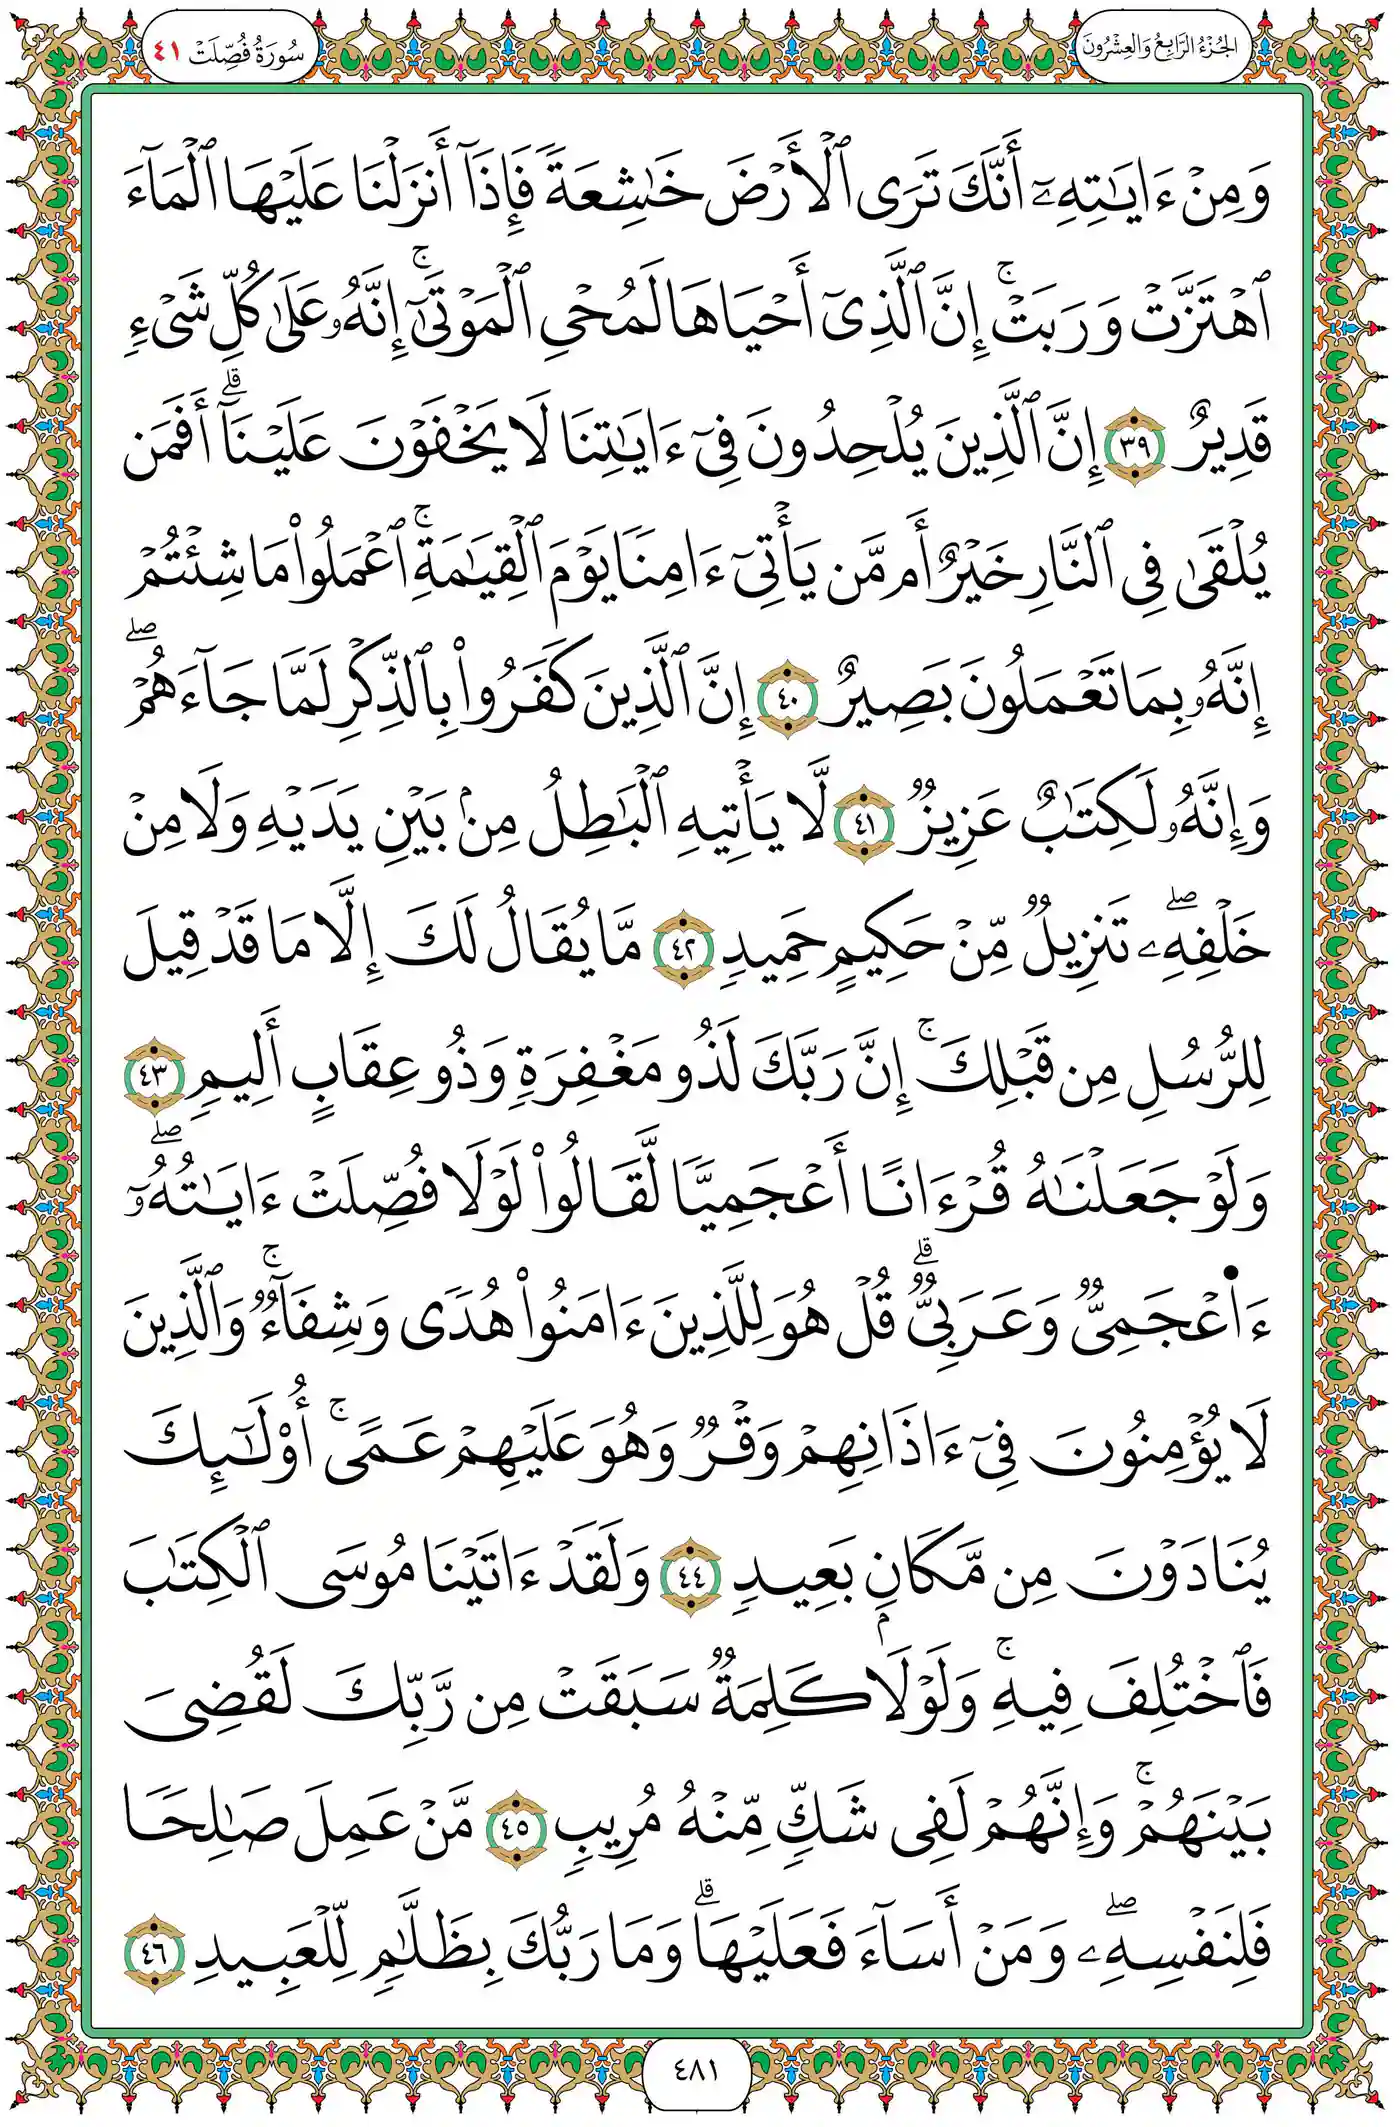 الجُزْءُ الرَّابِعُ وَالعِشْرُونَ
سُورَةُ فُصِّلَتْ ٤١
وَمِنْ ءَايَٰتِهِۦٓ أَنَّكَ تَرَى ٱلْأَرْضَ خَٰشِعَةً فَإِذَآ أَنزَلْنَا عَلَيْهَا ٱلْمَآءَ
ٱهْتَزَّتْ وَرَبَتْ ۚ إِنَّ ٱلَّذِىٓ أَحْيَاهَا لَمُحْىِ ٱلْمَوْتَىٰٓ ۚ إِنَّهُۥ عَلَىٰ كُلِّ شَىْءٍ
قَدِيرٌ ٣٩ إِنَّ ٱلَّذِينَ يُلْحِدُونَ فِىٓ ءَايَٰتِنَا لَا يَخْفَوْنَ عَلَيْنَآ ۗ أَفَمَن
يُلْقَىٰ فِى ٱلنَّارِ خَيْرٌ أَم مَّن يَأْتِىٓ ءَامِنًا يَوْمَ ٱلْقِيَٰمَةِ ۚ ٱعْمَلُوا۟ مَا شِئْتُمْ
إِنَّهُۥ بِمَا تَعْمَلُونَ بَصِيرٌ ٤٠ إِنَّ ٱلَّذِينَ كَفَرُوا۟ بِٱلذِّكْرِ لَمَّا جَآءَهُمْ ۖ
وَإِنَّهُۥ لَكِتَٰبٌ عَزِيزٌ ٤١ لَّا يَأْتِيهِ ٱلْبَٰطِلُ مِنۢ بَيْنِ يَدَيْهِ وَلَا مِنْ
خَلْفِهِۦ ۖ تَنزِيلٌ مِّنْ حَكِيمٍ حَمِيدٍ ٤٢ مَّا يُقَالُ لَكَ إِلَّا مَا قَدْ قِيلَ
لِلرُّسُلِ مِن قَبْلِكَ ۚ إِنَّ رَبَّكَ لَذُو مَغْفِرَةٍ وَذُو عِقَابٍ أَلِيمٍ ٤٣
وَلَوْ جَعَلْنَٰهُ قُرْءَانًا أَعْجَمِيًّا لَّقَالُوا۟ لَوْلَا فُصِّلَتْ ءَايَٰتُهُۥٓ ۖ
ءَا۬عْجَمِىٌّ وَعَرَبِىٌّ ۗ قُلْ هُوَ لِلَّذِينَ ءَامَنُوا۟ هُدًى وَشِفَآءٌ ۚ وَٱلَّذِينَ
لَا يُؤْمِنُونَ فِىٓ ءَاذَانِهِمْ وَقْرٌ وَهُوَ عَلَيْهِمْ عَمًى ۚ أُو۟لَٰٓئِكَ
يُنَادَوْنَ مِن مَّكَانٍۭ بَعِيدٍ ٤٤ وَلَقَدْ ءَاتَيْنَا مُوسَى ٱلْكِتَٰبَ
فَٱخْتُلِفَ فِيهِ ۚ وَلَوْلَا كَلِمَةٌ سَبَقَتْ مِن رَّبِّكَ لَقُضِىَ
بَيْنَهُمْ ۚ وَإِنَّهُمْ لَفِى شَكٍّ مِّنْهُ مُرِيبٍ ٤٥ مَّنْ عَمِلَ صَٰلِحًا
فَلِنَفْسِهِۦ ۖ وَمَنْ أَسَآءَ فَعَلَيْهَا ۗ وَمَا رَبُّكَ بِظَلَّٰمٍ لِّلْعَبِيدِ ٤٦
٤٨١